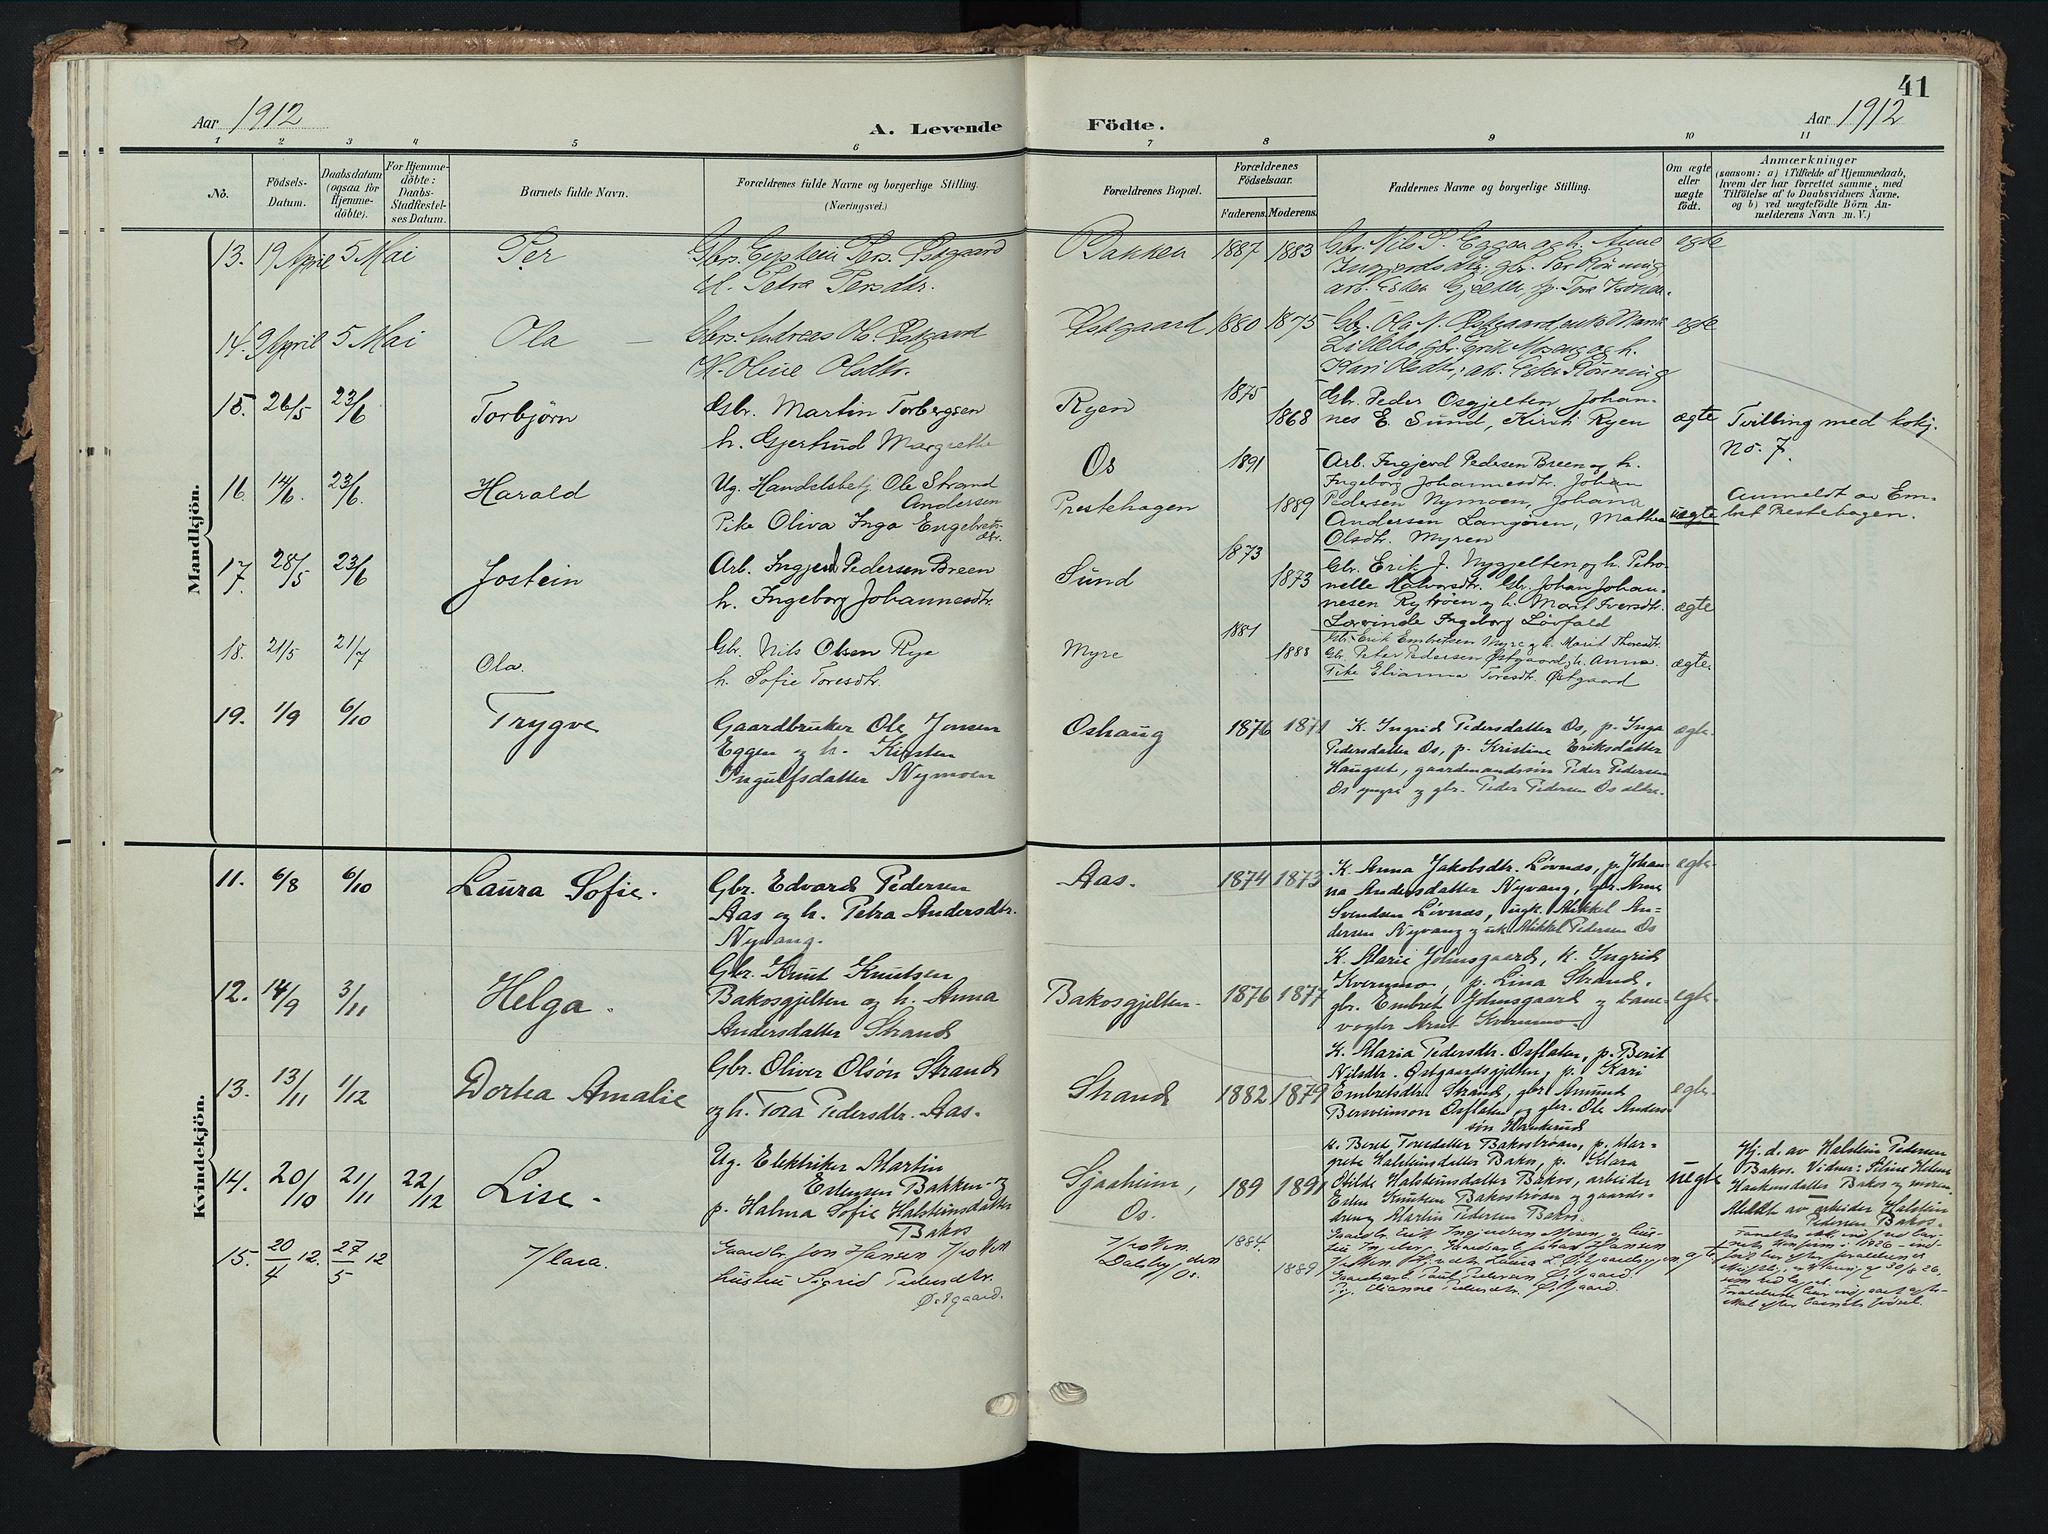 41
Aar 1912
A. Levende Födte.
Aar 1912
1 2 3 4 5 6 7 8 9 10 11
No.
Födsels-Datum.
Daabsdatum (ogsaa for Hjemmedöbte).
For Hjemmedöbte: Daabs-Stadfestelses Datum.
Barnets fulde Navn.
Forældrenes fulde Navne og borgerlige Stilling.
(Næringsvei.)
Forældrenes Bopæl.
Forældrenes Födselsaar.
Faderens. Moderens.
Faddernes Navne og borgerlige Stilling.
Om ægte eller uægte födt.
Anmærkninger
(saasom: a) i Tilfælde af Hjemmedaab,
hvem der har forrettet samme, med
Tilföielse af to Daabsvidners Navne,
og b) ved uægtefödte Börn Anmelderens Navn m. V.)
Mandkjön.
13. 19 April 5 Mai Per
Gbr. Eystein Pers. Østgaard
H. Petra Persdtr.
Bakken 1887 1883
Gbr. Nils P. Eggen og h. Anne
Ingjerdsdtr, gbr. Per Rönning
egte
14. 9 April 5 Mai Ola
Gbr. Andreas Ol. Østgaard
H. Oline Olsdtr.
Østgaard 1880 1875
Gbr. Ola N. Østgaard, enke Marit
Lillebo, gbr. Erik Moseng og h.
Kari Olsdtr, Rönning
egte
15. 26/5 23/6 Torbjörn
Gbr. Martin Torbergsen
h. Gjertrud Margrethe
Ryen 1875 1868
Gbr. Peder Osgjelten, Johannes E. Sund, Kirsti Ryen
ægte
Tvilling med kvkj.
No. 7.
16. 14/6. 23/6. Harald
Ug. Handelsbetj. Ole Strand
Andersen
Pike Oliva Inga Engebretsdtr.
Os
Prestehagen
1891 1889
Arb. Ingjerd Pedersen Breen og h.
Ingeborg Johannesdtr. Johan
Pedersen Nymoen, Johana
Andersen Langøren, Mathea
Olsdtr. Myren
uægte
Anmeldt av Embret Prestehagen.
17. 28/5 23/6 Jostein
Arb. Ingjerd Pedersen Breen
h. Ingeborg Johannesdtr.
Sund 1873 1873
Gbr. Erik J. Nygjelten og h. Petronelle Halvorsdtr. Gbr. Johan Johannesen Rytröen og h. Marit Iversdtr.
Lærerinde Ingeborg Lövfald
ægte
18. 21/5 21/7 Ola.
Gbr. Nils Olsen Rye
h. Sofie Toresdtr.
Myre 1881 1883
Gbr. Erik Embretsen Myre og h. Marit Thoresdtr.
Gbr. Peter Pedersen Østgaard, h. Anna
Pike Elianna Toresdtr. Østgaard
ægte.
19. 1/9 6/10 Trygve
Gaardbruker Ole Jonsen
Eggen og h. Kirsten
Ingulfsdatter Nymoen
Oshaug 1876 1871
K. Ingrid Pedersdatter Os, p. Inga
Pedersdatter Os, p. Kristine Eriksdatter
Haugset, gaardmandssön Peder Pedersen
Os yngre og gbr. Peder Pedersen Os eldre.
egte.
Kvindekjön.
11. 6/8 6/10 Laura Sofie.
Gbr. Edvard Pedersen
Aas og h. Petra Andersdtr.
Nyvang.
Aas. 1874 1873
K. Anna Jakobsdtr. Lövnes, p. Johanna Andersdatter Nyvang, gbr. Arne
Svendsen Lövnes, ungk. Mikkel Andersen Nyvang og uk. Mikkel Pedersen Os
egte.
12. 14/9 3/11 Helga.
Gbr. Knut Knutsen
Bakosgjelten og h. Anna
Andersdatter Strand
Bakosgjelten. 1876 1877
K. Marie Johnsgaard, K. Ingrid
Kvernmo, p. Lina Strand,
gbr. Embret Johnsgaard og banevogter Arnt Kvernmo.
egte.
13. 13/11 1/12 Dortea Amalie
Gbr. Oliver Olsön Strand
og h. Tora Pedersdtr. Aas.
Strand 1882 1879
K. Maria Pedersdtr. Osflaten, p. Berit
Nilsdtr. Østgaardsgjelten, p. Kari
Embretsdtr. Strand, gbr. Amund
Bersveinson Osflaten og gbr. Ole Anderssön
egte.
14. 20/10 21/11 22/12 Lise.
Ug. Elektriker Martin
Estensen Bakken og
p. Halma Sofie Halsteinsdatter
Bakos
Sjaaheim,
Os.
189 1891
K. Beret Toresdatter Bakostrøan, p. Margrete Halsteinsdatter Bakos, p. Klara
Otilde Halsteinsdatter Bakos, arbeider
Esten Knutsen Bakostrøan og gaardsdreng Martin Pedersen Bakos.
uegte
Hj. d. av Halstein Pedersen
Bakos. Vidner: Seline Helene
Haakensdatter Bakos og moren.
Meldt av arbeider Halstein
Pedersen Bakos.
15. 20/4 12. 27/5 12 Klara.
Gaardbr. Jon Hansen
hustru Sigrid Pedersdtr.
Østgaard.
Dalsbygden
Os.
1884. 1889